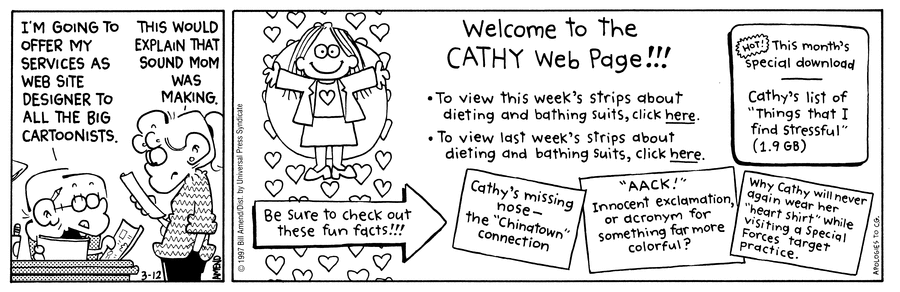 I'M GOING TO
OFFER MY
SERVICES AS
WEB SITE
DESIGNER TO
ALL THE BIG
CARTOONISTS.
THIS WOULD
EXPLAIN THAT
SOUND MOM
WAS
MAKING.
3-12
AMEND
© 1997 Bill Amend/Dist. by Universal Press Syndicate
Welcome to the
CATHY Web Page!!!
• To view this week's strips about
dieting and bathing suits, click here.
• To view last week's strips about
dieting and bathing suits, click here.
HOT! This month's
special download
Cathy's list of
"Things that I
find stressful"
(1.9 GB)
Be sure to check out
these fun facts!!!
Cathy's missing
nose—
the "Chinatown"
connection
"AACK!"
Innocent exclamation,
or acronym for
something far more
colorful?
Why Cathy will never
again wear her
"heart shirt" while
visiting a Special
Forces target
practice.
APOLOGIES TO CG.